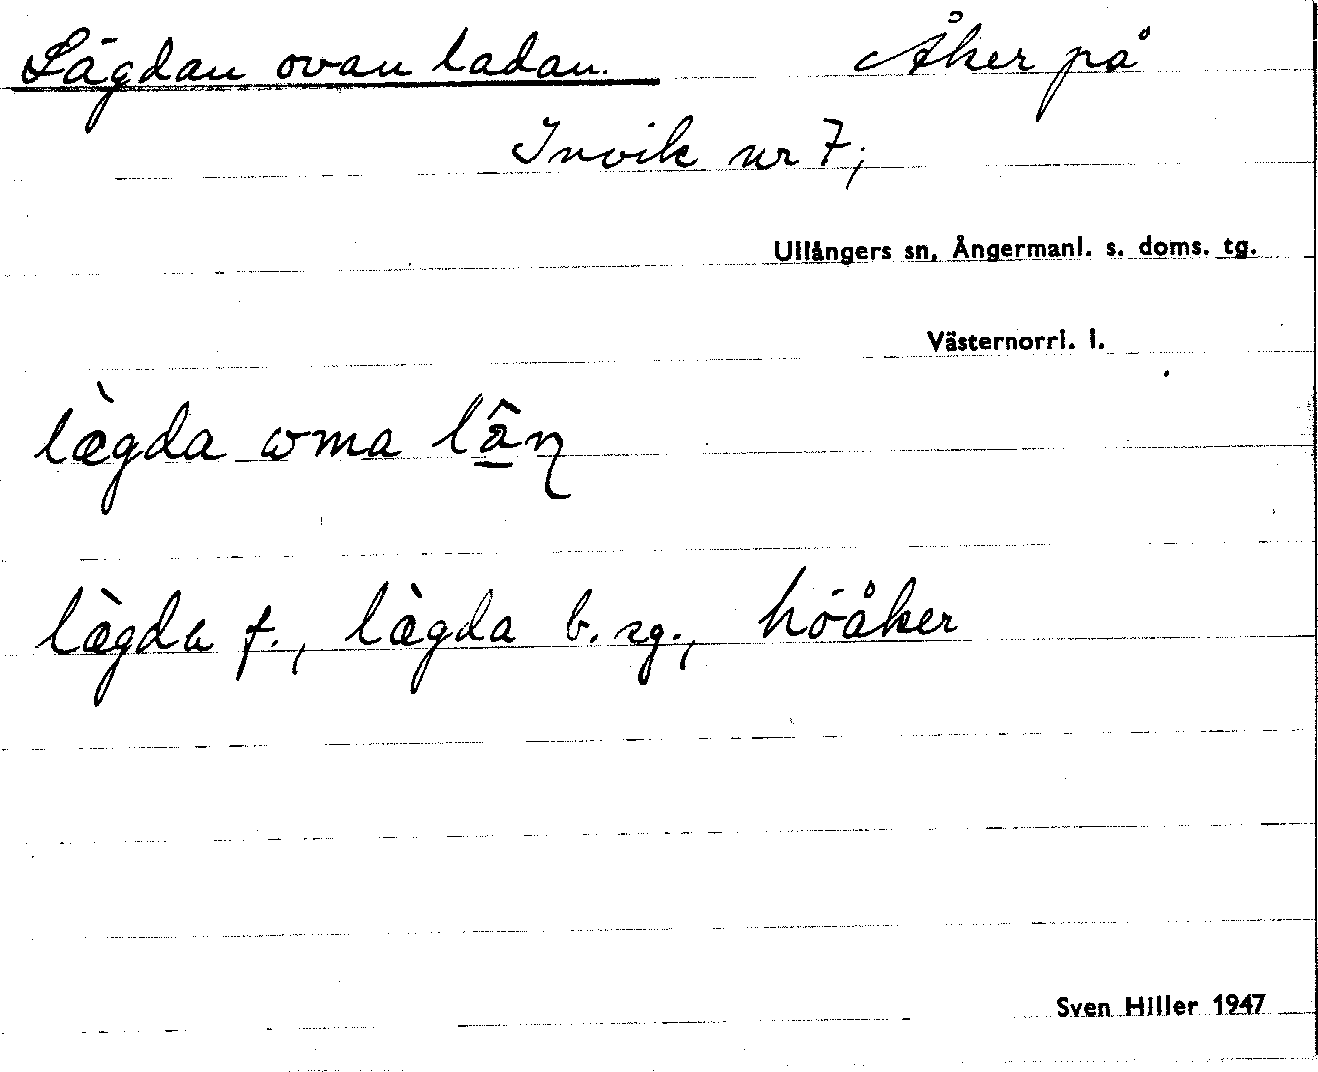 Lägdan ovan ladan. Åker på
Invik nr 7;
Ullångers sn, Ångermanl. s. doms. tg.
Västernorrl. l.
lægda ɷma lâ̠ɳ
lægda f., lægda b. sg., höåker
Sven Hiller 1947